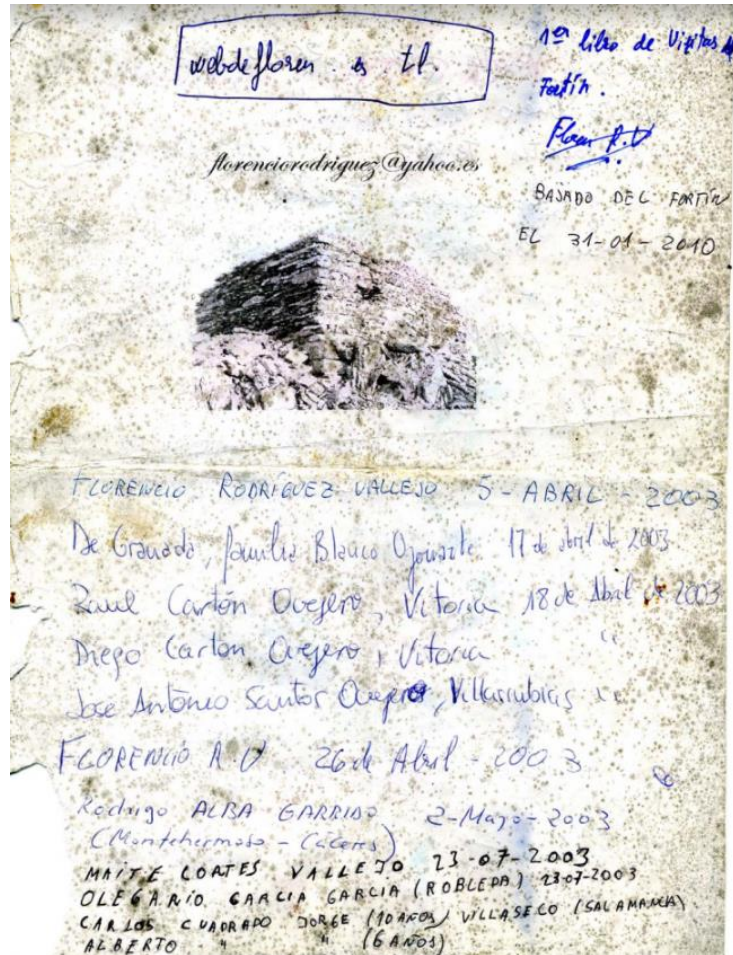 webdefloren . es . tl.
1er libro de Visitas del
Fortín.
Floren R.V
florenciorodriguez@yahoo.es
BAJADO DEL FORTÍN
EL 31-01-2010
FLORENCIO RODRÍGUEZ VALLEJO 5 - ABRIL - 2003
De Granada, familia Blanco 17 de abril de 2003
Raul Cartón Ovejero, Vitoria 18 de Abril de 2003
Diego Carton Ovejero, Vitoria "
José Antonio Santos Ovejero, Villarrubias "
FLORENCIO R.V 26 de Abril - 2003
Rodrigo ALBA GARRIDO 2-Mayo-2003
(Montehermoso - Cáceres)
MAITE CORTES VALLEJO 23-07-2003
OLEGARIO GARCIA GARCIA (ROBLEDA) 23-07-2003
CARLOS CUADRADO JORGE (10 AÑOS) VILLASECO (SALAMANCA)
ALBERTO " " (6 AÑOS)